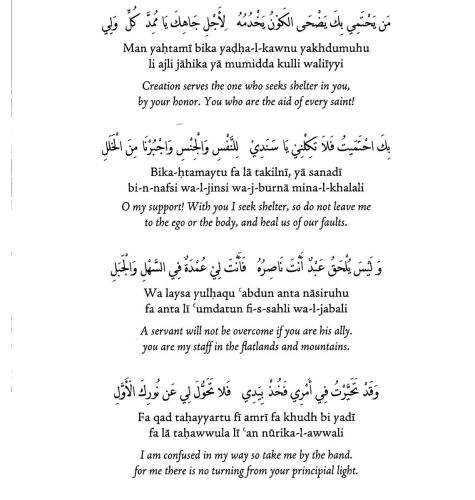 مَن يَحْتَمِي بِكَ يَضْحَى الكَوْنُ يَخْدُمُهُ لِأَجْلِ جَاهِكَ يَا مُمِدَّ كُلِّ وَلِي
Man yaḥtamī bika yaḍḥa-l-kawnu yakhdumuhu
li ajli jāhika yā mumidda kulli waliīyyi
Creation serves the one who seeks shelter in you,
by your honor. You who are the aid of every saint!
بِكَ احْتَمَيتُ فَلَا تَكِلْنِيْ يَا سَنَدِيْ لِلنَّفْسِ وَالْجِنْسِ وَاجْبُرْنَا مِنَ الْخَلَلِ
Bika-ḥtamaytu fa lā takilnī, yā sanadī
bi-n-nafsi wa-l-jinsi wa-j-burnā mina-l-khalali
O my support! With you I seek shelter, so do not leave me
to the ego or the body, and heal us of our faults.
وَلَيْسَ يُلْحَقُ عَبْدٌ أَنْتَ نَاصِرُهُ فَأَنْتَ لِيْ عُمْدَةٌ فِي السَّهْلِ وَالْجَبَلِ
Wa laysa yulḥaqu ʿabdun anta nāsiruhu
fa anta lī ʿumdatun fi-s-sahli wa-l-jabali
A servant will not be overcome if you are his ally.
you are my staff in the flatlands and mountains.
وَقَدْ تَحَيَّرْتُ فِي أَمْرِي فَخُذْ بِيَدِي فَلَا تَحَوُّلَ لِي عَن نُورِكَ الْأَوَّلِ
Fa qad taḥayyartu fī amrī fa khudh bi yadī
fa lā taḥawwula lī ʿan nūrika-l-awwali
I am confused in my way so take me by the hand.
for me there is no turning from your principial light.